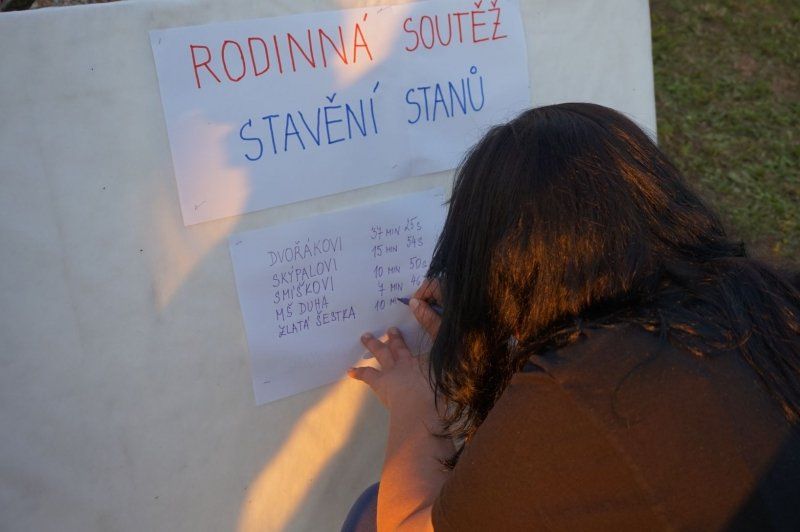 RODINNÁ SOUTĚŽ
STAVĚNÍ STANŮ
DVOŘÁKOVI 37 MIN 25 S
SKÝPALOVI 15 MIN 54 S
SMIŠKOVI 10 MIN 50 S
MŠ DUHA 7 MIN
ZLATÁ ŠESTKA 10 MI